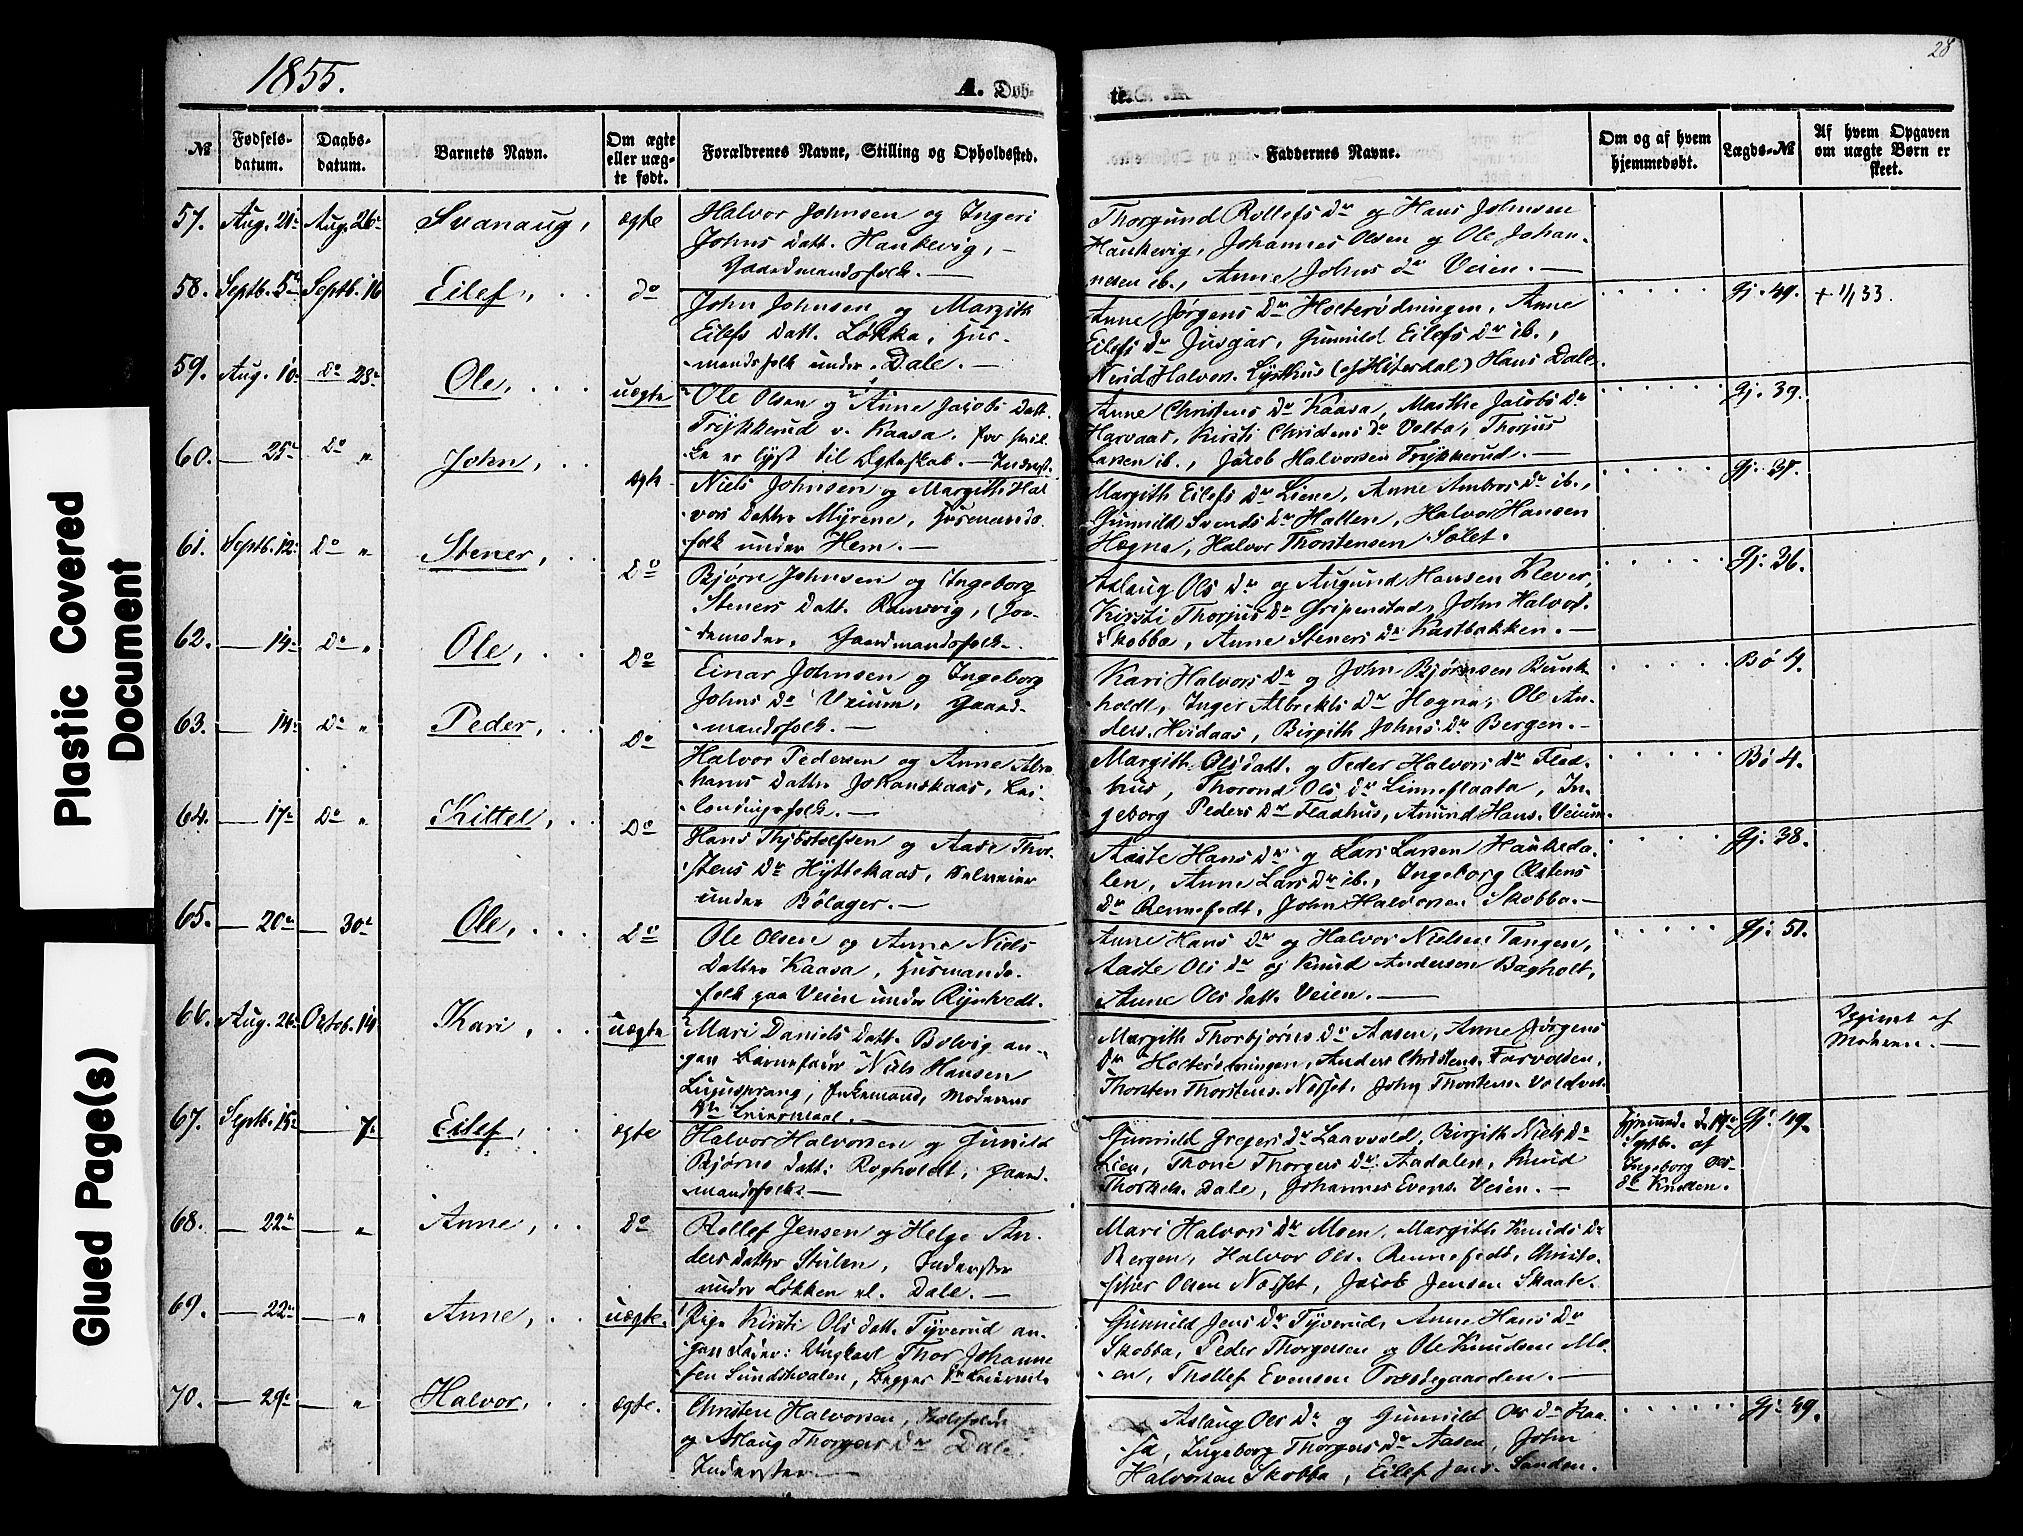 28
1855.
A. Døb-
te.
№
Fødsels-
datum.
Daabs-
datum.
Barnets Navn.
Om ægte
eller uæg-
te født.
Forældrenes Navne, Stilling og Opholdssted.
Faddernes Navne.
Om og af hvem
hjemmedøbt.
Lægds-№
Af hvem Opgaven
om uægte Børn er
skeet.
Plastic Covered
Document
Glued Page(s)
57. Aug. 21de Aug. 26de Svanaug, ægte
Halvor Johnsen og Ingeri
Johns Datt. Haukevig, –
Gaardmandsfolk. –
Thorgund Rollefs Dr og Hans Johnsen
Haukevig, Johannes Olsen og Ole Johan-
nesen ib., Anne Johns Dr Veien. –
58. Septb. 5te Septb. 16 Eilef, . . do
John Johnsen og Margith
Eilefs Datt. Løkka, Hus-
mandsfolk under Dale. –
Anne Jørgens Dr Holterødningen, Anne
Eilefs Dr Jusgar, Gunnild Eilefs Dr ib.,
Nirid Halvors. Lysthus (af Hiterdal) Hans Dale.
Gj. 49. + 1/1 33.
59. Aug. 10de Do 23de Ole, . . . uægte
Ole Olsen og Anne Jacobs Datt.
Trykkerud v. Kaasa. for
er lyst til Ægteskab. – Inderst.
Anne Christens Dr Kaasa, Marthe Jacobs Dr
Harvaas, Kirsti Christens Dr Volta, Thorjus
Larsen ib., Jacob Halvorsen Trykkerud. –
Gj. 39.
60. — 25de Do " John, . . ægte
Niels Johnsen og Margith Hal
vors Datter Myrene, Husmands-
folk under Hem. –
Margith Eilefs Dr Liene, Anne Ambros Dr ib.,
Gunnild Svends Dr Hallen, Halvor Hansen
Hogna, Halvor Thorstensen Solet.
61. Septb. 12te Do " Stener, . . Do
Bjørn Johnsen og Ingeborg
Steners Datt. Ramsvig, (Jor-
demoder, Gaardmandsfolk.
Aslaug Ols Dr og Augund Hansen Klever,
Kirsti Thorjus Dr Gripenstad, John Halvors.
Skobba, Anne Steners Dr Kastbakken. –
Gj. 36.
62. — 14de Do " Ole, . . Do
Einar Johnsen og Ingeborg
Johns Dr Veium, Gaard-
mandsfolk. –
Kari Halvors Dr og John Bjørnsen Bunk-
holdt, Inger Albrekts Dr Hogna, Ole An-
ders. Hvidaas, Birgith Johns Dr Bergen. –
Bø 4.
63. — 14de Do " Peder, . . Do
Halvor Pedersen og Anne Abra
hams Datter Johanskaas, Lei-
lendingsfolk. –
Margith Olsdatt. og Peder Halvors Dr Flad-
hus, Thorond Ols Dr Linneflaata, In-
geborg Peders Dr Fladhus, Amund Hans. Veium.
Bø 4.
64. — 17de Do " Kittel, . . Do
Hans Thybstolfsen og Aase Thor-
stens Dr Hyttekaas, Selveier
under Bølager. –
Aaste Hans Dr og Lars Larsen Haukeda-
len, Anne Lars Dr ib., Ingeborg Olstens
Dr Rennefedt, John Halvorsen Skobba. –
Gj. 38.
65. — 20de — 30te Ole, . . . Do
Ole Olsen og Anne Niels
Datter Kaasa, Husmands-
folk paa Veien under Rynhedt.
Anne Hans Dr og Halvor Nielsen Tangen,
Aaste Ols Dr og Knud Andersen Bagholt,
Anne Ols datt. Veien. –
Gj. 51.
66. Aug. 26de Octob. 14 Kari, . . uægte
Mari Daniels Datt. Bolvig an-
gav Barnefader Niels Hansen
Moderens
Leiermaal.
Margith Thorbjørns Dr Aasen, Anne Jørgens
Dr Holterødningen, Anders Christens. Farvolden,
Thorsten Thorstens. Næsset, John Thorstens.
af
Moderen. –
67. Septb. 15de — 7de Eilef, . ægte
Halvor Halvorsen og Gunild
Bjørns Datt: Rogholdt, Gaard-
mandsfolk. –
Gunnild Gregers Dr Laavold, Birgith Niels Dr
Lien, Thone Thorgers Dr Aadalen, Knud
Thorkels. Dale, Johannes Evens. Veien. –
Hjemmed. d. 19de
Septbr. af
Ingeborg Ols
Dr Knutten.
Gj. 49.
68. — 22de — " Anne, . . Do
Rollef Jensen og Helge An-
dersdatter Stulen, Inderster
under Løkken vl. Dale. –
Mari Halvors Dr Moen, Margith Knuds Dr
Bergen, Halvor Ols. Rennefedt, Christo-
pher Olsen Næsset, Jacob Jensen Skaate.
69. — 22de — " Anne, . . uægte.
Pige Kirsti Ols datt. Tyverud an-
gav Fader: Ungkarl Thor Johanne
sen Sundskvalen, Begges
Gunnild Jens Dr Tyverud, Anne Hans Dr
Skobba, Peder Thorgersen og Ole Knudsen Mo-
en, Thollef Evensen Præstegaarden. –
70. — 29de — " Halvor, . . ægte.
Christen Halvorsen,
og Aslaug Thorgers Dr Dale
Inderster –
Aslaug Ols Dr og Gunnild Ols Dr Kaa-
sa, Ingeborg Thorgers Dr Aasen, John
Halvorsen Skobba, Eilef Jens. Sanden.
Gj. 49.